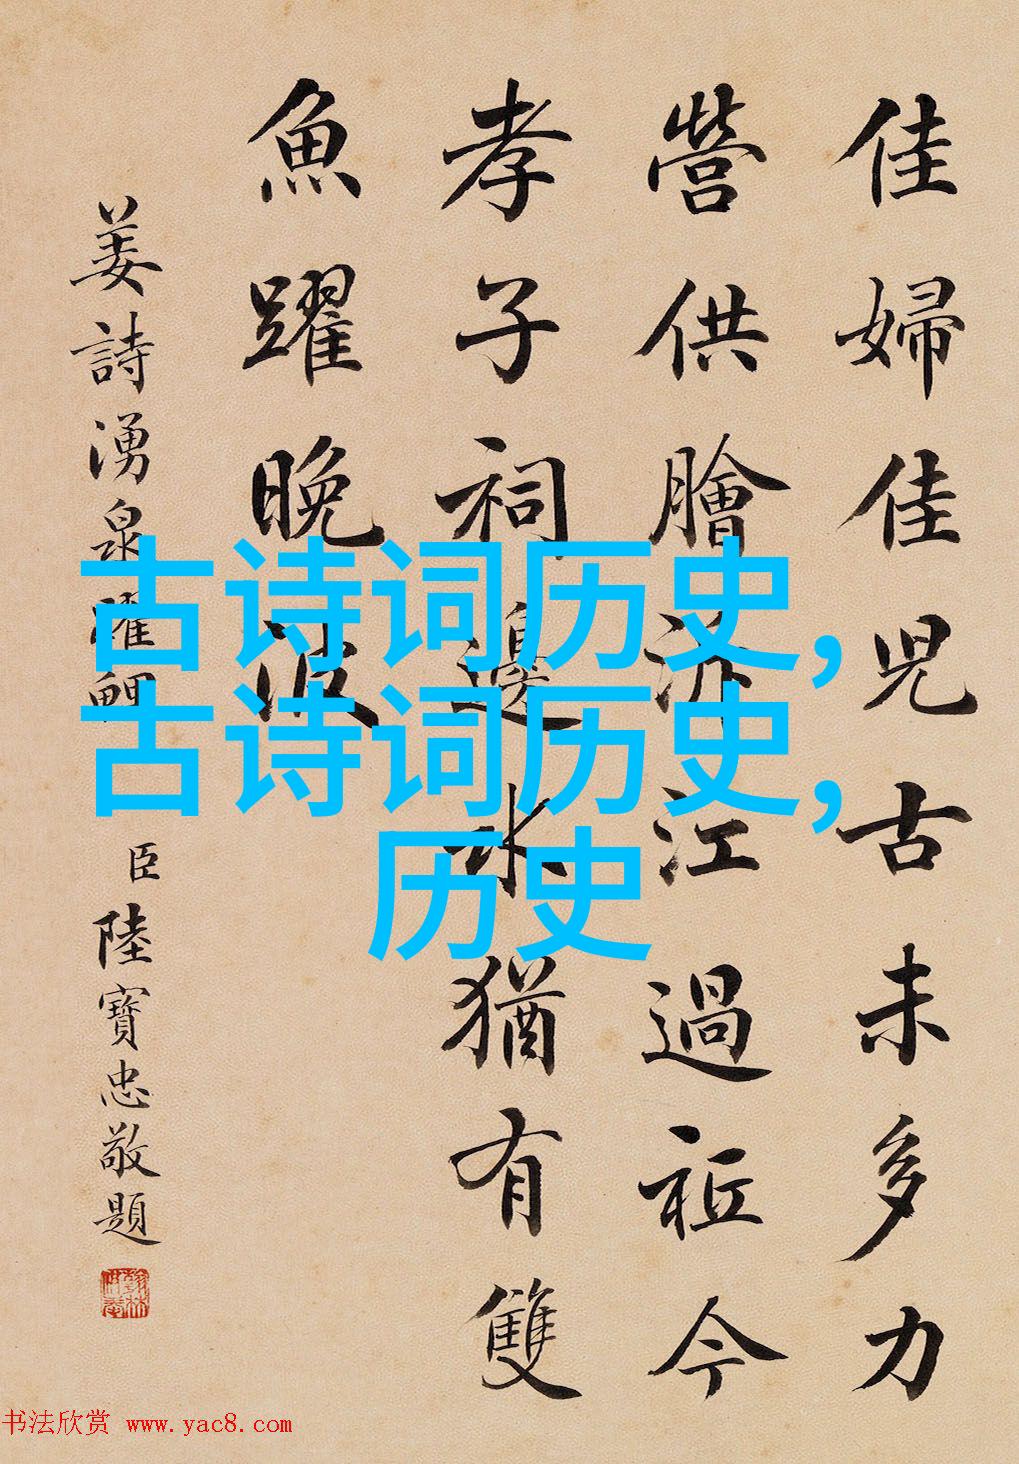 佳婦佳兒古未多力
營供膾泝江過祗今
孝子祠邊水猶有雙
魚躍晚波
姜詩湧泉躍鯉
臣陸寶忠敬題
古诗词历史,
古诗词历史,
历史
书法欣赏 www.yac8.com